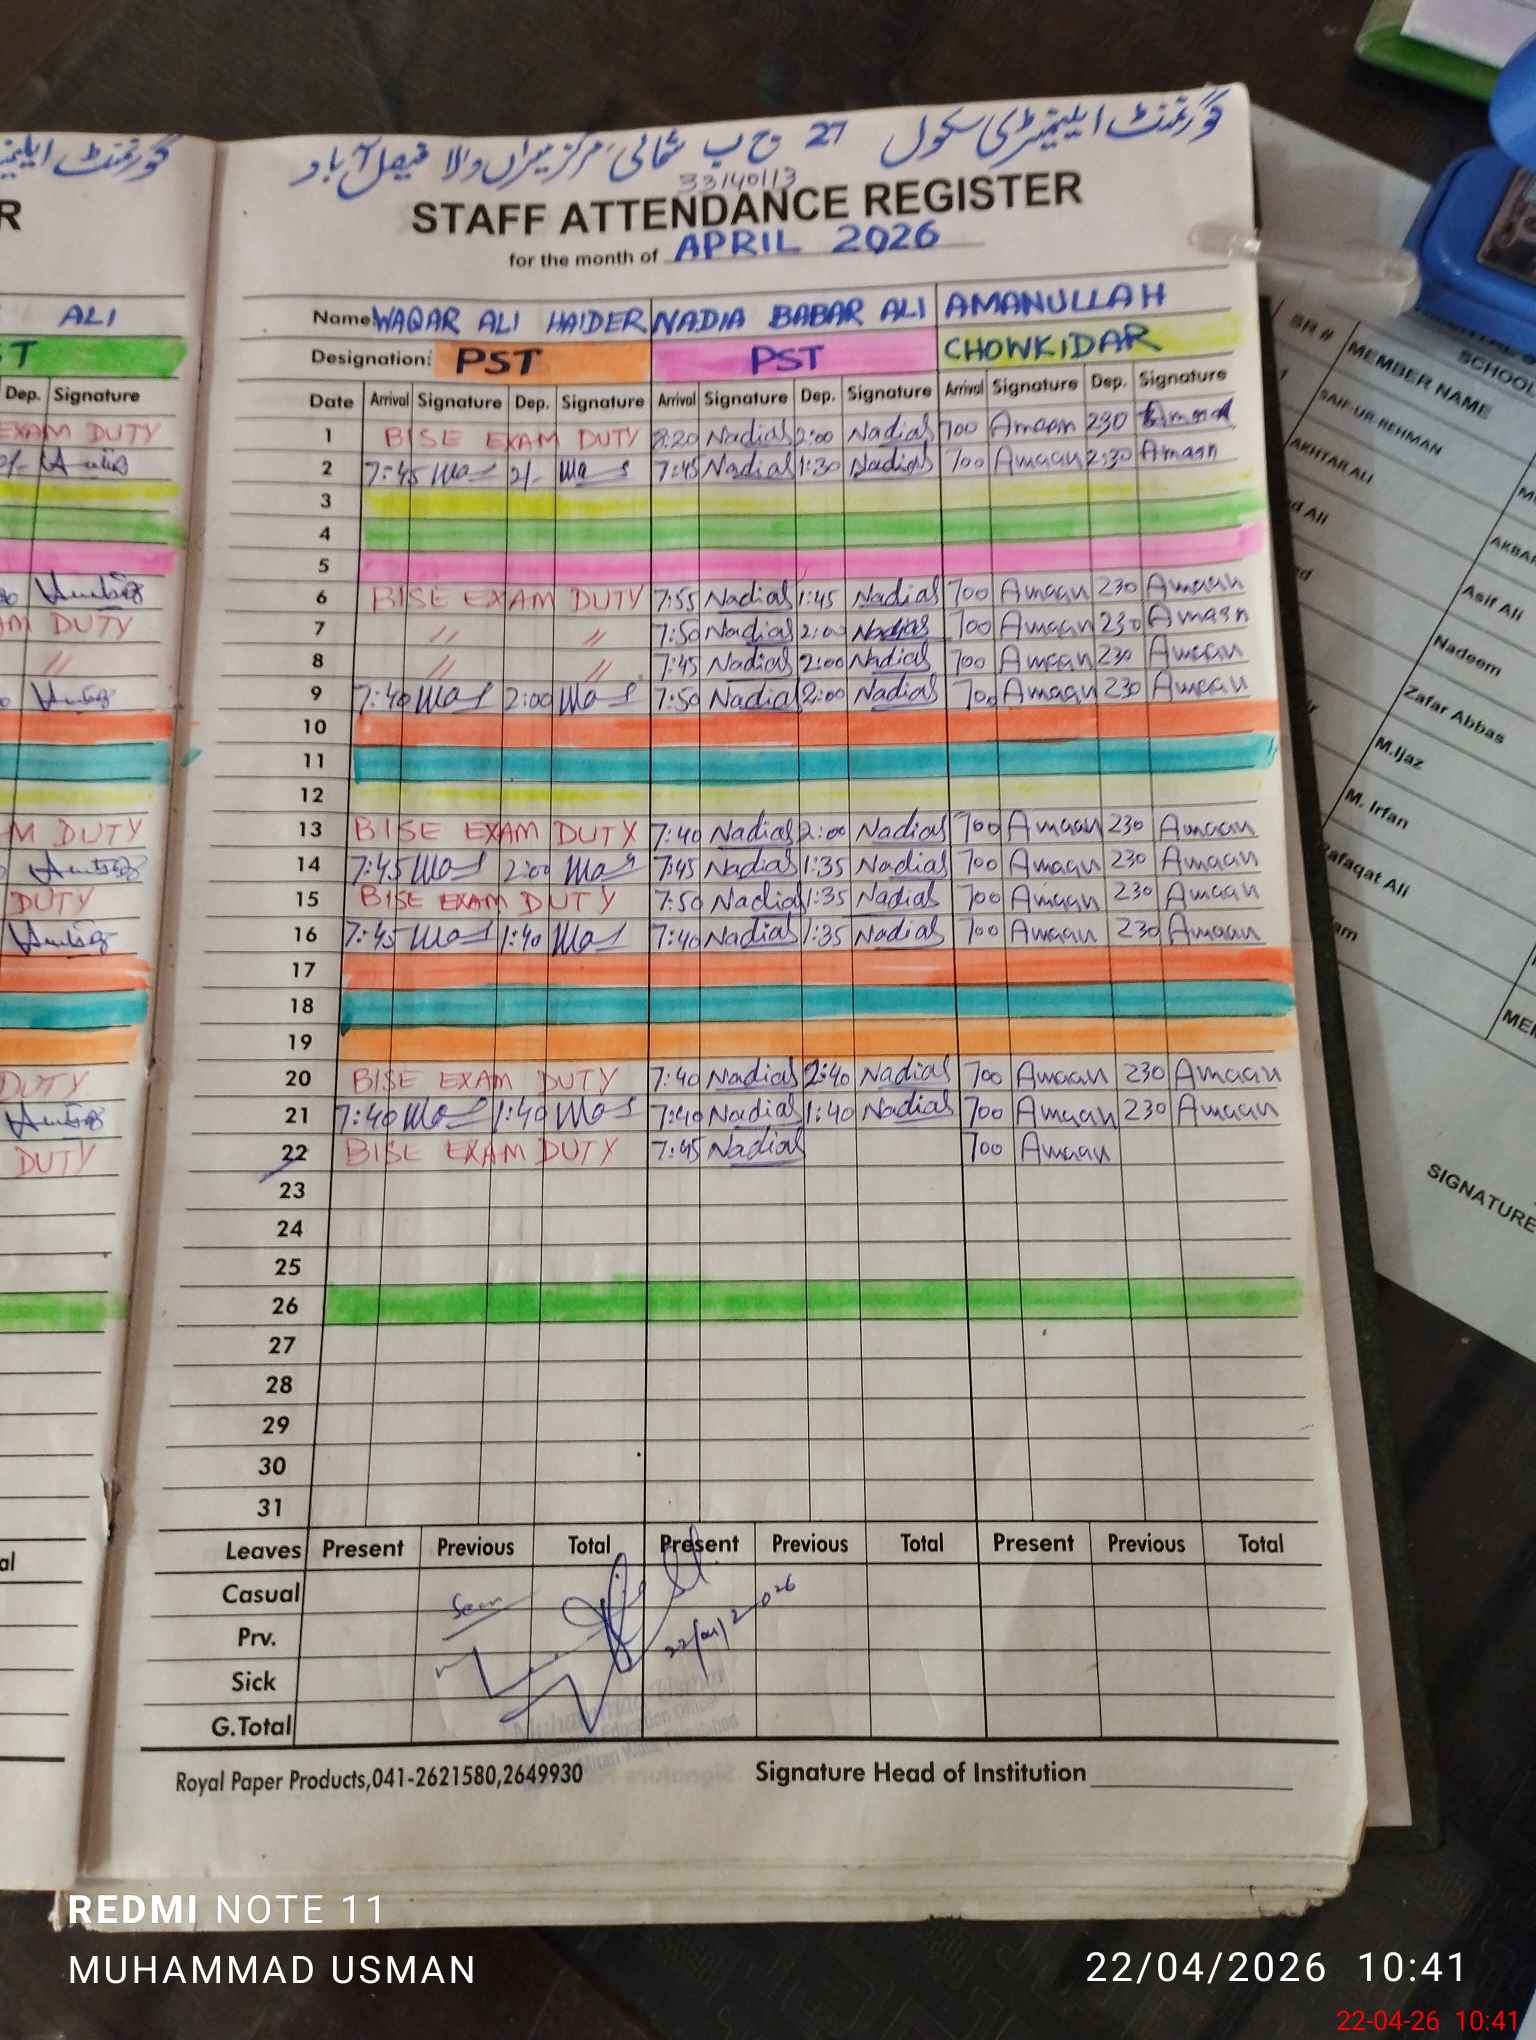 گورنمنٹ ایلیمنٹری سکول 27 ج ب شمالی، مرکز میراں والا فیصل آباد
33140113
STAFF ATTENDANCE REGISTER
for the month of APRIL 2026
Name WAQAR ALI HAIDER NADIA BABAR ALI AMANULLAH
Designation: PST PST CHOWKIDAR
Date Arrival Signature Dep. Signature Arrival Signature Dep. Signature Arrival Signature Dep. Signature
1 BISE EXAM DUTY 8:20 Nadia 2:00 Nadia 700 Amaan 230
2 7:45 Was 2/- Was 7:45 Nadia 1:30 Nadia 700 Amaan 2:30 Amaan
3
4
5
6 BISE EXAM DUTY 7:55 Nadia 1:45 Nadia 700 Amaan 230 Amaan
7 // // 7:50 Nadia 2:00 Nadia 700 Amaan 230 Amaan
8 // // 7:45 Nadia 2:00 Nadia 700 Amaan 230 Amaan
9 7:40 Was 2:00 Was 7:50 Nadia 2:00 Nadia 700 Amaan 230 Amaan
10
11
12
13 BISE EXAM DUTY 7:40 Nadia 2:00 Nadia 700 Amaan 230 Amaan
14 7:45 Was 2:00 Was 7:45 Nadia 1:35 Nadia 700 Amaan 230 Amaan
15 BISE EXAM DUTY 7:50 Nadia 1:35 Nadia 700 Amaan 230 Amaan
16 7:45 Was 1:40 Was 7:40 Nadia 1:35 Nadia 700 Amaan 230 Amaan
17
18
19
20 BISE EXAM DUTY 7:40 Nadia 2:40 Nadia 700 Amaan 230 Amaan
21 7:40 Was 1:40 Was 7:40 Nadia 1:40 Nadia 700 Amaan 230 Amaan
22 BISE EXAM DUTY 7:45 Nadia 700 Amaan
23
24
25
26
27
28
29
30
31
Leaves Present Previous Total Present Previous Total Present Previous Total
Casual
Seen
22/04/2026
Prv.
Sick
G.Total
Muhammad Usman
Assistant Education Officer
Royal Paper Products,041-2621580,2649930
Signature Head of Institution
R
ALI
ST
Dep. Signature
EXAM DUTY
AM DUTY
//
M DUTY
DUTY
DUTY
DUTY
al
SCHOOL
SR # MEMBER NAME
SAIF-UR-REHMAN
AKHTAR ALI
Asif Ali
Nadeem
Zafar Abbas
M.Ijaz
M. Irfan
Rafaqat Ali
SIGNATURE
REDMI NOTE 11
MUHAMMAD USMAN
22/04/2026 10:41
22-04-26 10:41